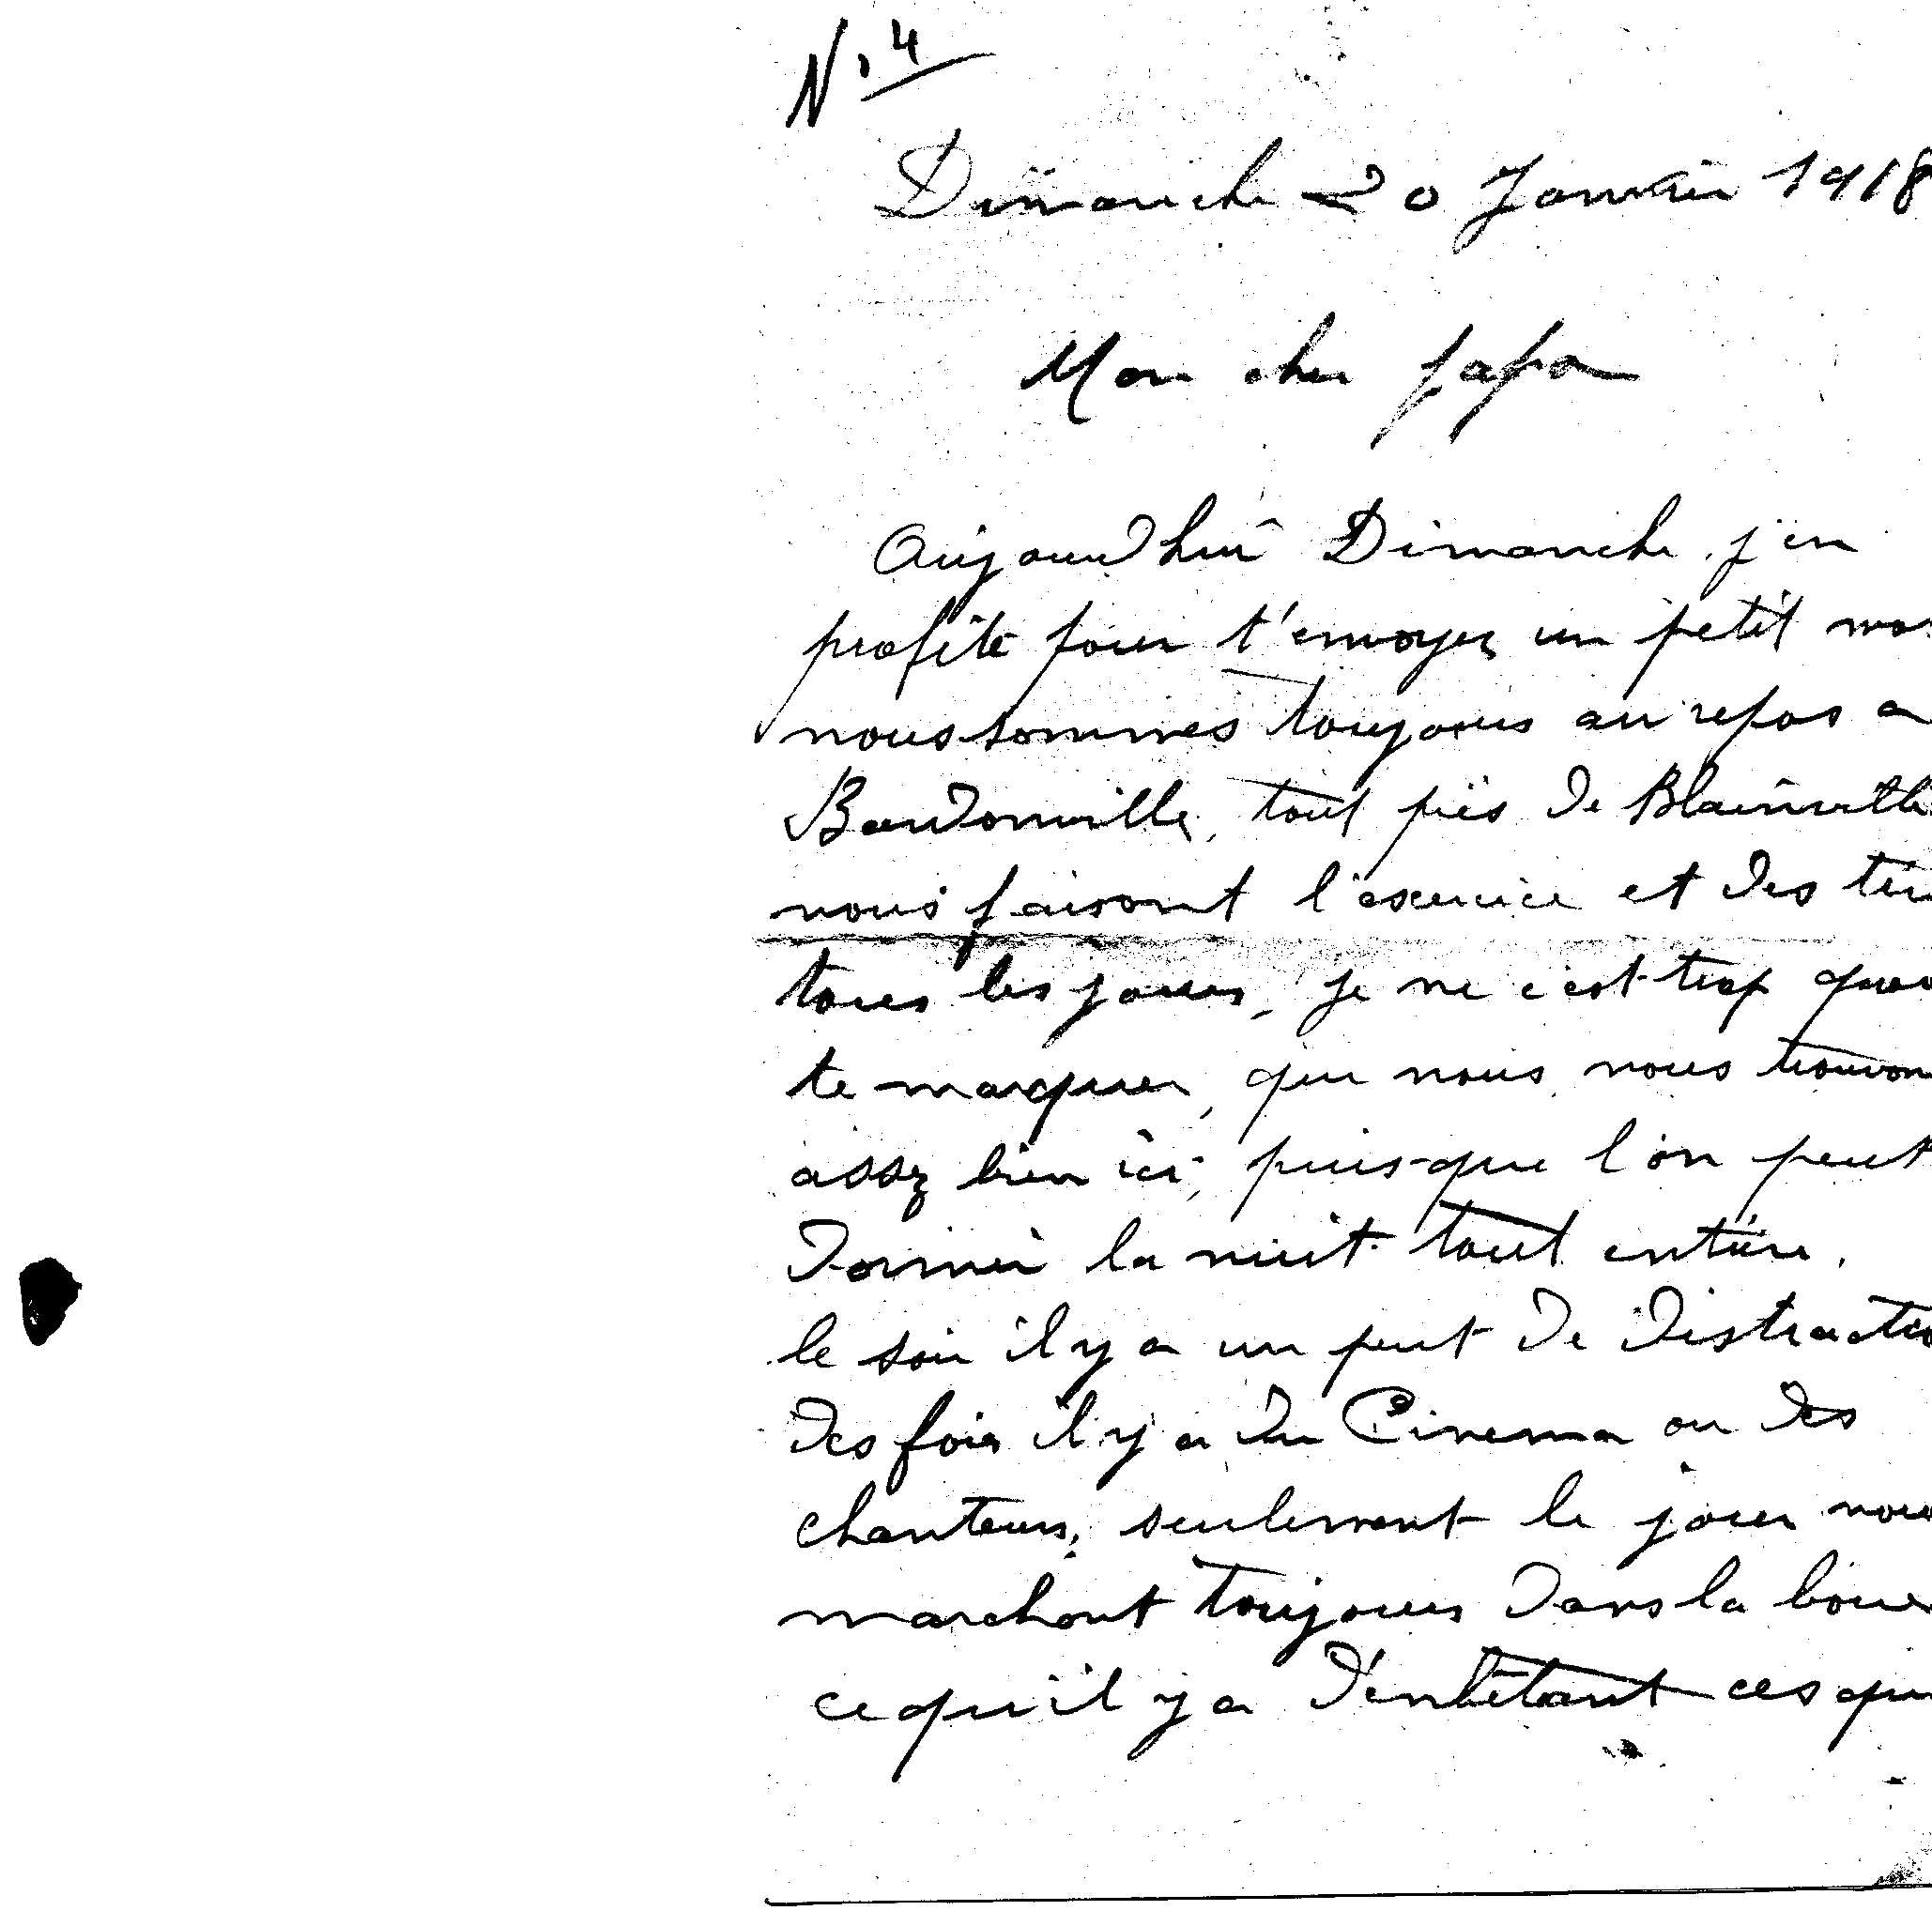 N. 4
Dimanche 20 Janvier 1918
Mon cher papa
Aujourd'hui Dimanche, j'en
profite pour t'envoyer un petit mo
nous sommes toujours au repos a
Baudonville, tout près de Blainville
nous faisont l'exercice et des tir
tous les jours, je ne c'est trop quoi
te marquer, que nous nous trouvon
assez bien ici, puis-que l'on peut
dormir la nuit tout entière.
le soir il y a un peut de distractio
des fois il y a du Cinema ou des
chanteurs, seulement le jour nous
marchont toujours dans la boue
ce qu'il y a d'embêtant ces que